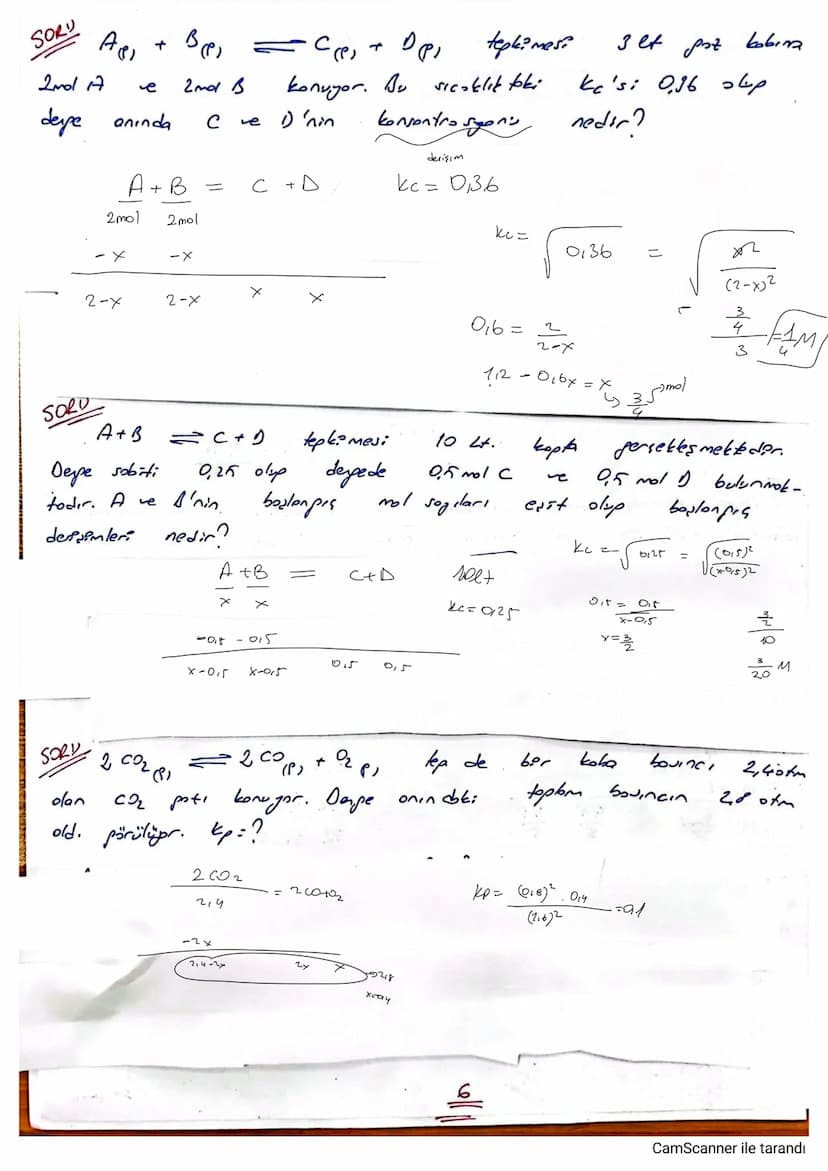 SORU A(g) + B(g) ⇌ C(g) + D(g) tepkimesi 3 lt gaz kabına
2mol A ve 2mol B konuyor. Bu sıcaklıktaki Kc'si 0,36 olup
denge anında C ve D'nin konsantrasyonu nedir?
derişim
A + B = C + D Kc = 0,36
2mol 2mol
-x -x
2-x 2-x x x
Kc = √0,36 = √x²/(2-x)²
0,6 = 2/2-x
1,2 - 0,6x = x
↳ 3/4 mol
3/4 / 3 = 1/4 M
SORU
A+B ⇌ C + D tepkimesi 10 Lt. kapta gerçekleşmektedir.
Denge sabiti 0,25 olup dengede 0,5 mol C ve 0,5 mol D bulunmak-
tadır. A ve B'nin başlangıç mol sayıları eşit olup başlangıç
derişimleri nedir?
A + B = C+D 10Lt
x x Kc = 0,25
-0,5 -0,5
x-0,5 x-0,5 0,5 0,5
Kc = √0,25 = √(0,5)²/(x-0,5)²
0,5 = 0,5/x-0,5
x = 3/2
3/2 / 10
3/20 M
SORU 2 CO₂(g) ⇌ 2 CO(g) + O₂(g) tep de bir kaba basıncı 2,4 atm
olan CO₂ gazı konuyor. Denge anındaki toplam basıncın 2,8 atm
old. görülüyor. Kp=?
2 CO₂ = 2CO+O₂
2,4
-2x
2,4-2x 2x x → 2,8
x=0,4
Kp = (0,8)² . 0,4/(1,6)² = 0,1
6
CamScanner ile tarandı